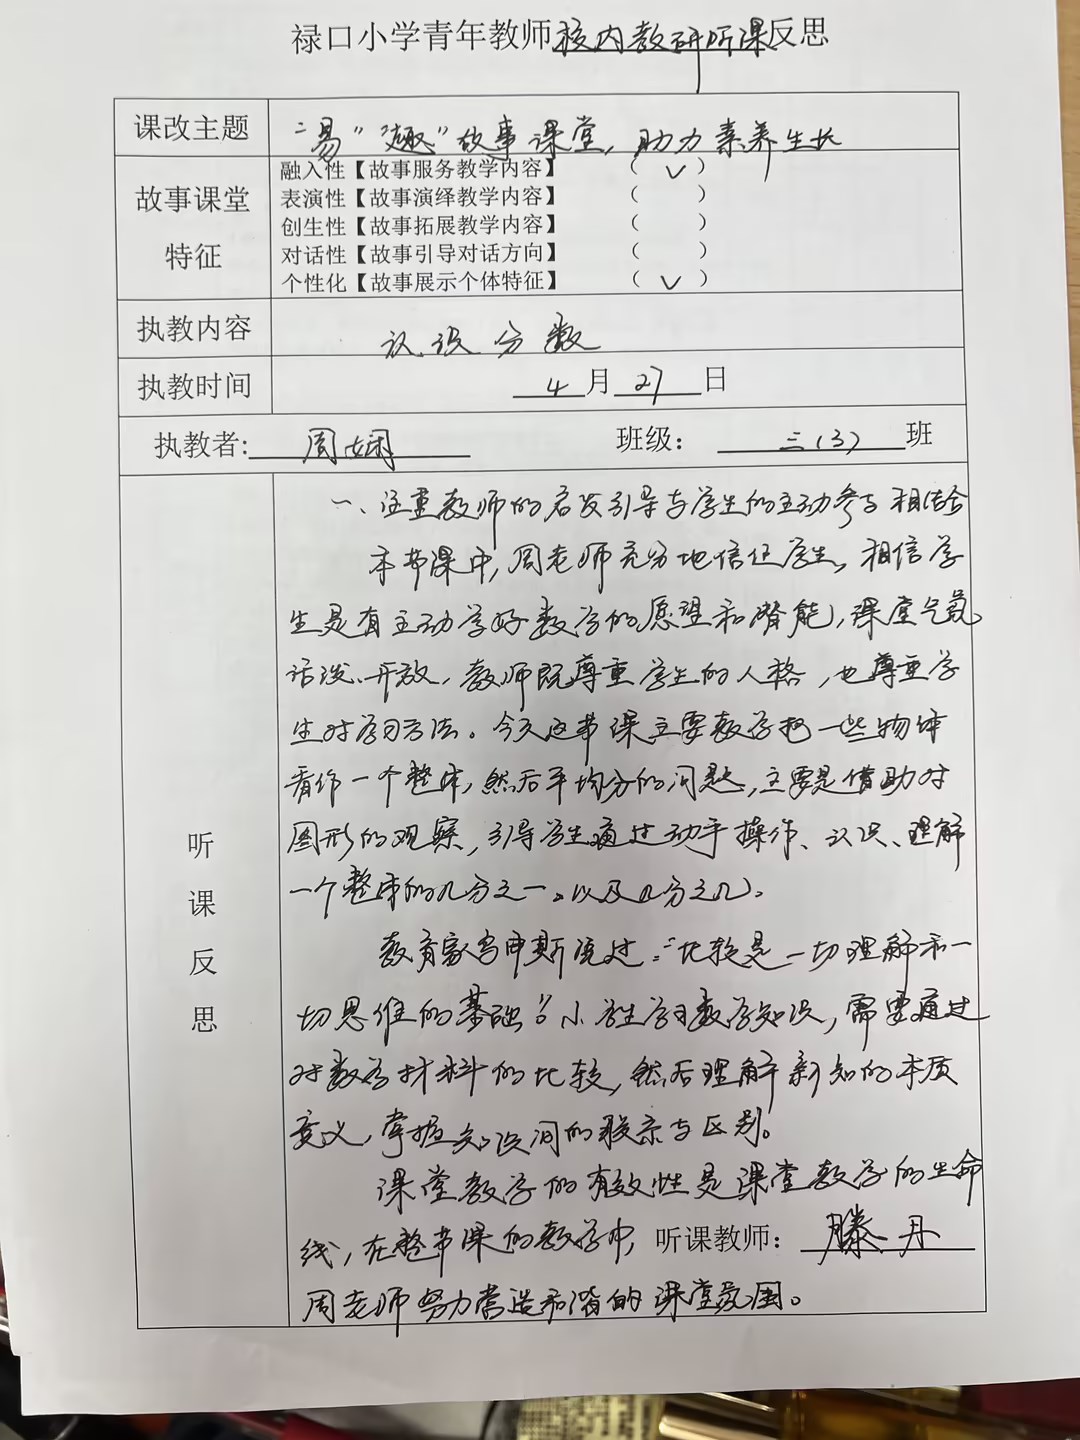 禄口小学青年教师校内教研听课反思
课改主题 "易""趣"故事课堂，助力素养生长
故事课堂
特征
融入性【故事服务教学内容】 （ ✓ ）
表演性【故事演绎教学内容】 （ ）
创生性【故事拓展教学内容】 （ ）
对话性【故事引导对话方向】 （ ）
个性化【故事展示个体特征】 （ ✓ ）
执教内容 认识分数
执教时间 4 月 27 日
执教者: 周娴 班级： 三（3） 班
听课反思
一、注重教师的启发引导与学生的主动参与相结合
本节课中，周老师充分地信任学生，相信学
生是有主动学好数学的愿望和潜能，课堂气氛
活泼、开放，教师既尊重学生的人格，也尊重学
生对学习方法。今天这节课主要教学把一些物体
看作一个整体，然后平均分的问题，主要是借助对
图形的观察，引导学生通过动手操作、认识、理解
一个整体的几分之一。以及几分之几。
教育家乌申斯克过："比较是一切理解和一
切思维的基础"。小学生学习数学知识，需要通过
对数学材料的比较，然后理解新知的本质
意义，掌握知识间的联系与区别。
课堂教学的有效性是课堂教学的生命
线，在整节课的教学中， 听课教师： 滕丹
周老师努力营造和谐的课堂氛围。